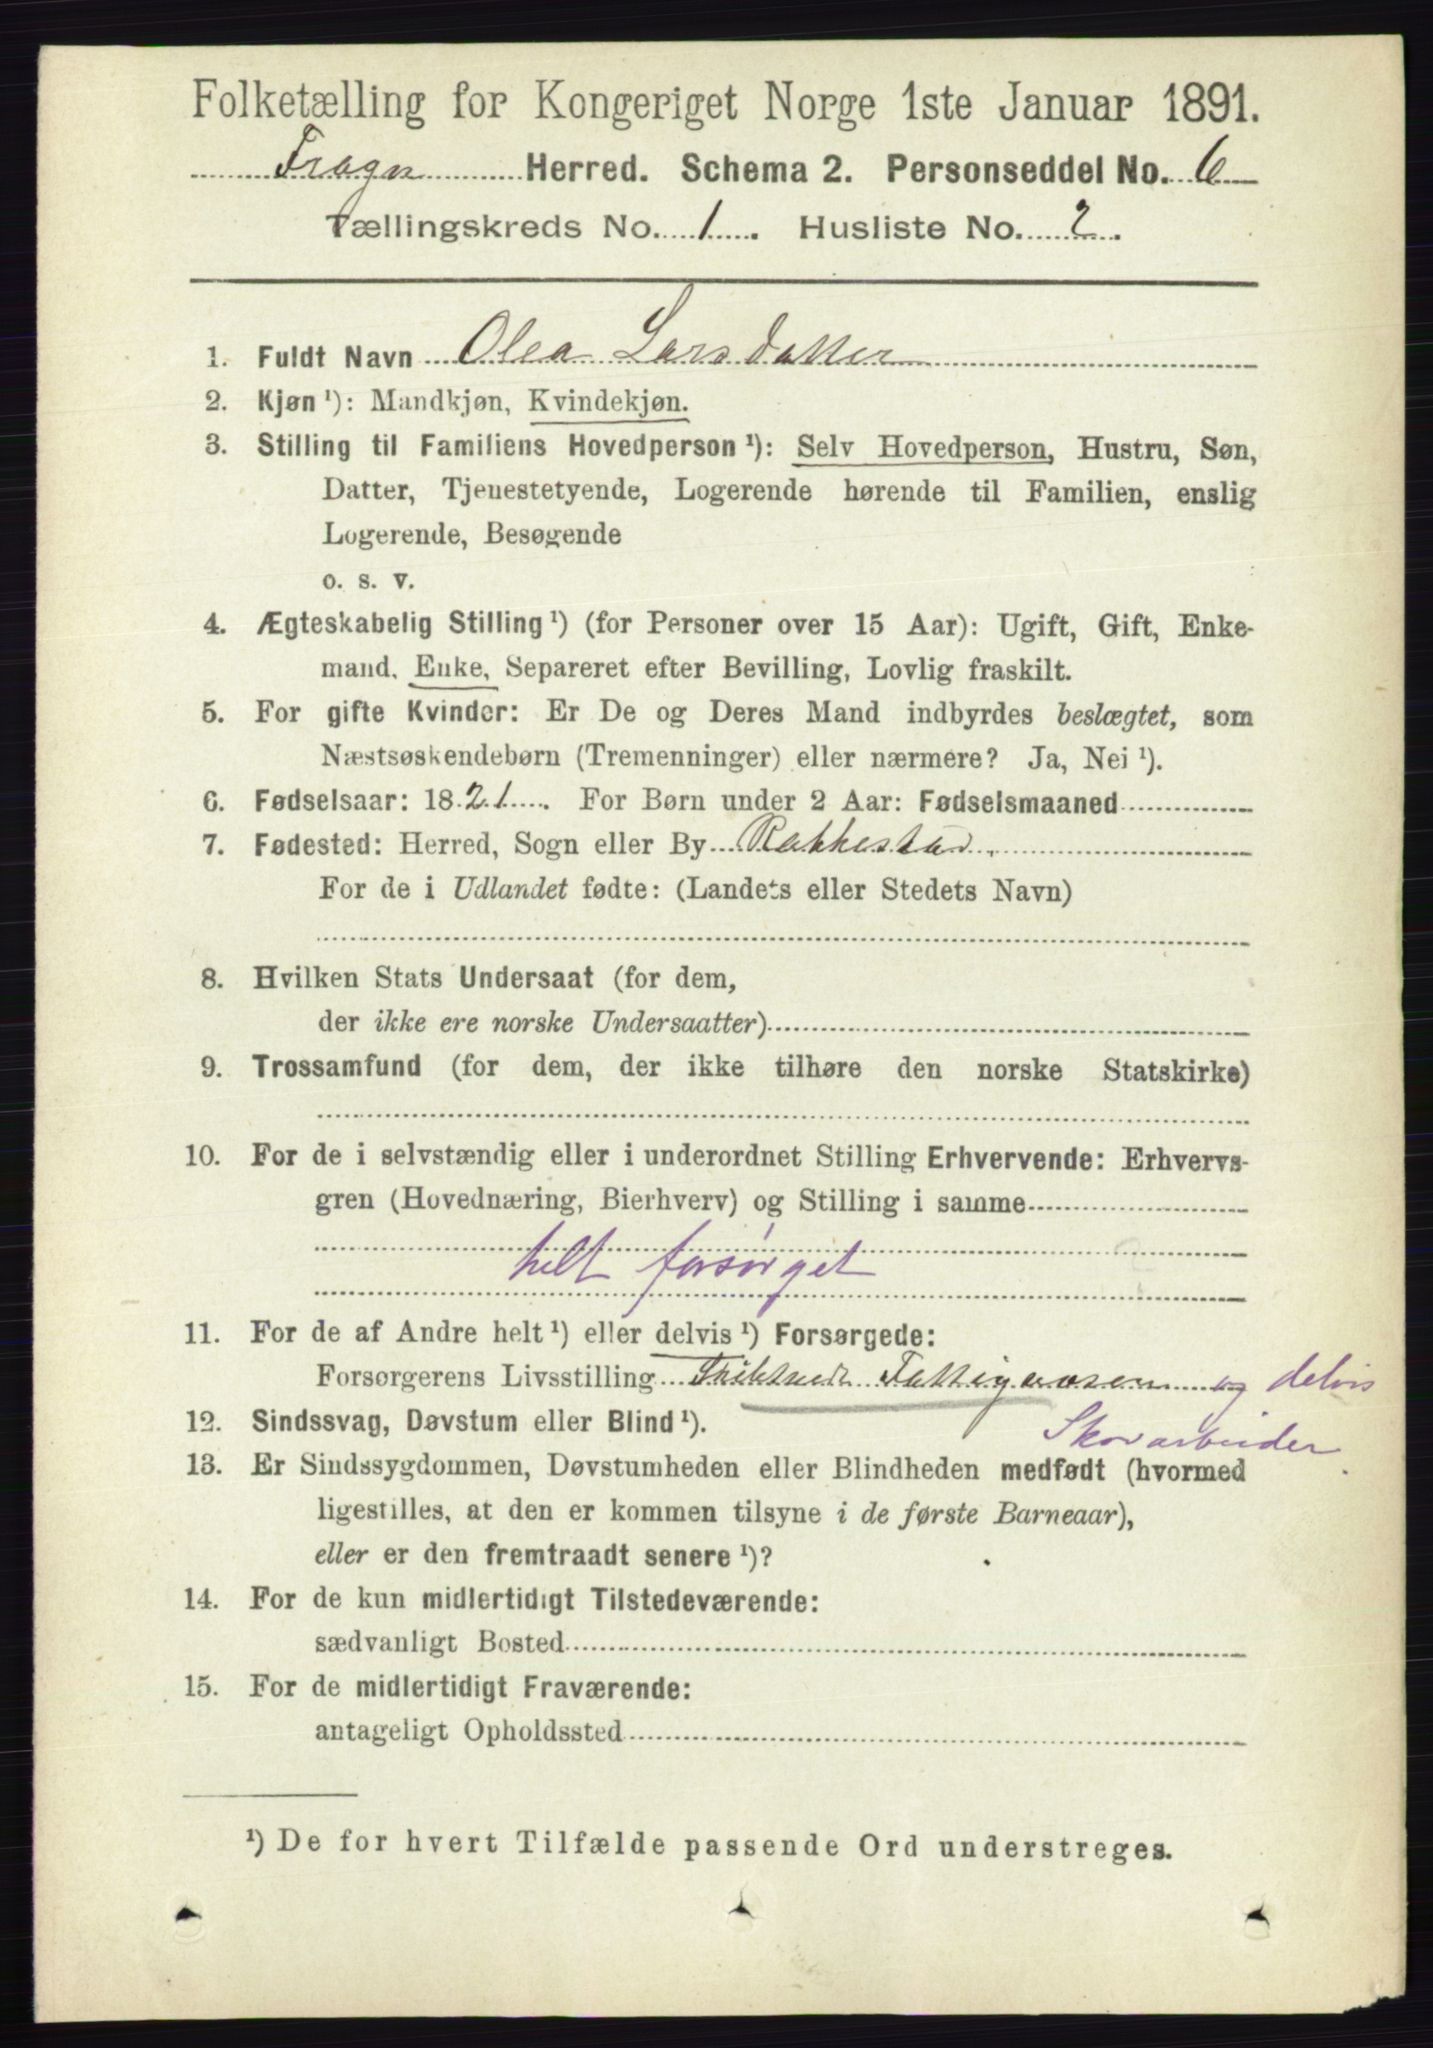 Folketælling for Kongeriget Norge 1ste Januar 1891.
Frogn Herred. Schema 2. Personseddel No. 6
Tællingskreds No. 1. Husliste No. 2.
1. Fuldt Navn Olea Larsdatter
2. Kjøn ¹): Mandkjøn, Kvindekjøn.
3. Stilling til Familiens Hovedperson ¹): Selv Hovedperson, Hustru, Søn,
Datter, Tjenestetyende, Logerende hørende til Familien, enslig
Logerende, Besøgende
o. s. v.
4. Ægteskabelig Stilling ¹) (for Personer over 15 Aar): Ugift, Gift, Enke-
mand, Enke, Separeret efter Bevilling, Lovlig fraskilt.
5. For gifte Kvinder: Er De og Deres Mand indbyrdes beslægtet, som
Næstsøskendebørn (Tremenninger) eller nærmere? Ja, Nei ¹).
6. Fødselsaar: 1821. For Børn under 2 Aar: Fødselsmaaned
7. Fødested: Herred, Sogn eller By Rakkestad.
For de i Udlandet fødte: (Landets eller Stedets Navn)
8. Hvilken Stats Undersaat (for dem,
der ikke ere norske Undersaatter)
9. Trossamfund (for dem, der ikke tilhøre den norske Statskirke)
10. For de i selvstændig eller i underordnet Stilling Erhvervende: Erhvervs-
gren (Hovednæring, Bierhverv) og Stilling i samme
helt forsørget
11. For de af Andre helt ¹) eller delvis ¹) Forsørgede:
Forsørgerens Livsstilling Fattigvæsen og delvis
Skovarbeider
12. Sindssvag, Døvstum eller Blind ¹).
13. Er Sindssygdommen, Døvstumheden eller Blindheden medfødt (hvormed
ligestilles, at den er kommen tilsyne i de første Barneaar),
eller er den fremtraadt senere ¹)?
14. For de kun midlertidigt Tilstedeværende:
sædvanligt Bosted
15. For de midlertidigt Fraværende:
antageligt Opholdssted
¹) De for hvert Tilfælde passende Ord understreges.